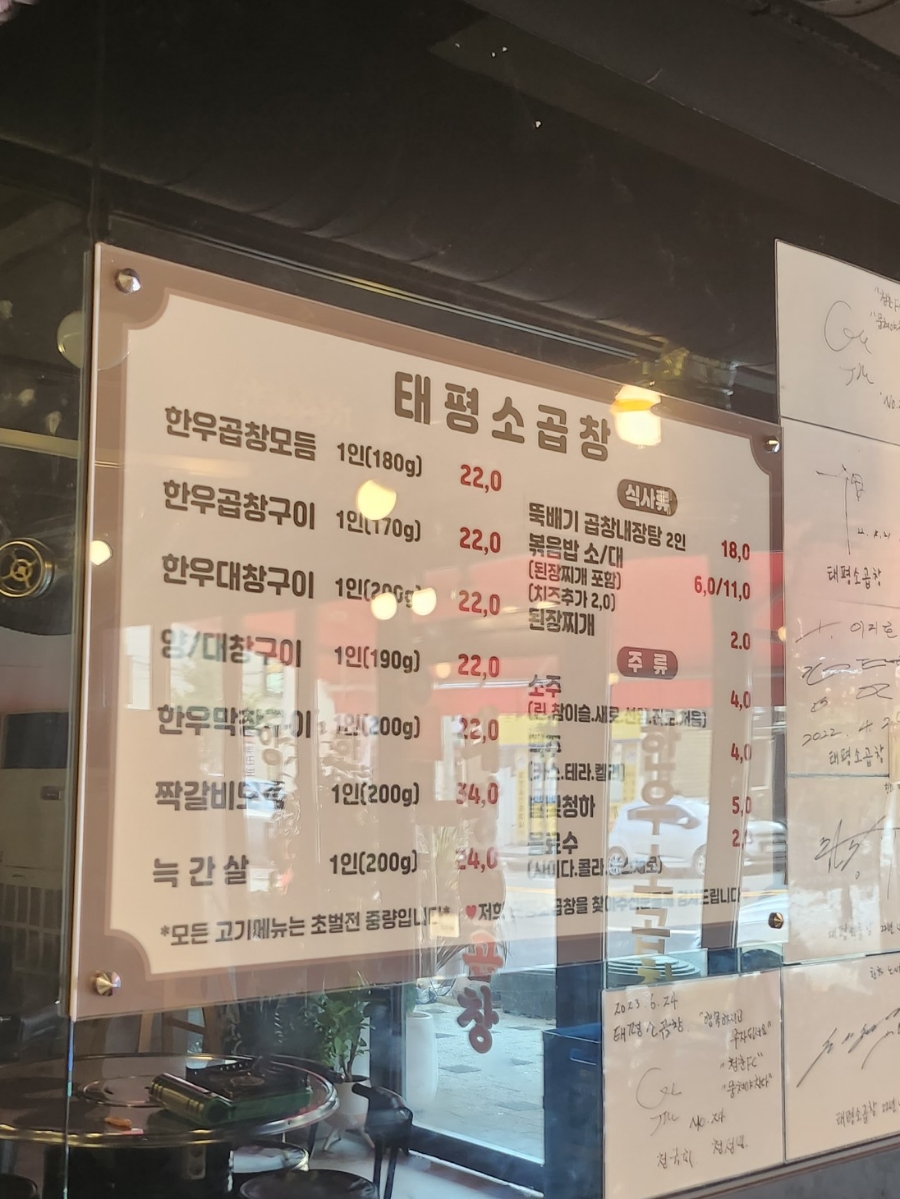 태평소곱창
한우곱창모듬 1인(180g) 22,0
한우곱창구이 1인(170g) 22,0
한우대창구이 1인(200g) 22,0
양/대창구이 1인(190g) 22,0
한우막창구이 1인(200g) 22,0
짝갈비모듬 1인(200g) 34,0
늑간살 1인(200g) 24,0
*모든 고기메뉴는 초벌전 중량입니다*
식사류
뚝배기 곱창내장탕 2인 18,0
볶음밥 소/대 6,0/11,0
(된장찌개 포함)
(치즈추가 2,0)
된장찌개 2.0
주류
소주 4,0
(린.참이슬.새로.선양.진로.처음)
맥주 4,0
(카스.테라.켈리)
별빛청하 5,0
음료수 2,
(사이다.콜라.환스제로)
♥저희 곱창을 찾아주셔서 감사드립니다
곱창
한우소곱창
태평소곱창
이지훈
2022. 4. 2
태평소곱창
2023. 6. 24
태평소곱창
"청춘FC"
"뭉쳐야찬다"
No. 24
태평소곱창